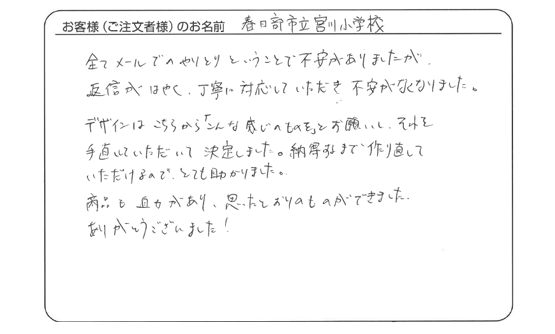 お客様（ご注文者様）のお名前 春日部市立宮川小学校
全てメールでのやりとりということで不安がありましたが、
返信がはやく、丁寧に対応していただき 不安がなくなりました。
デザインはこちらから「こんな感じのものを」とお願いし、それを
手直していただいて 決定しました。納得するまで作り直して
いただけるので、とても助かりました。
商品も 迫力があり、思ったとおりのものができました。
ありがとうございました！